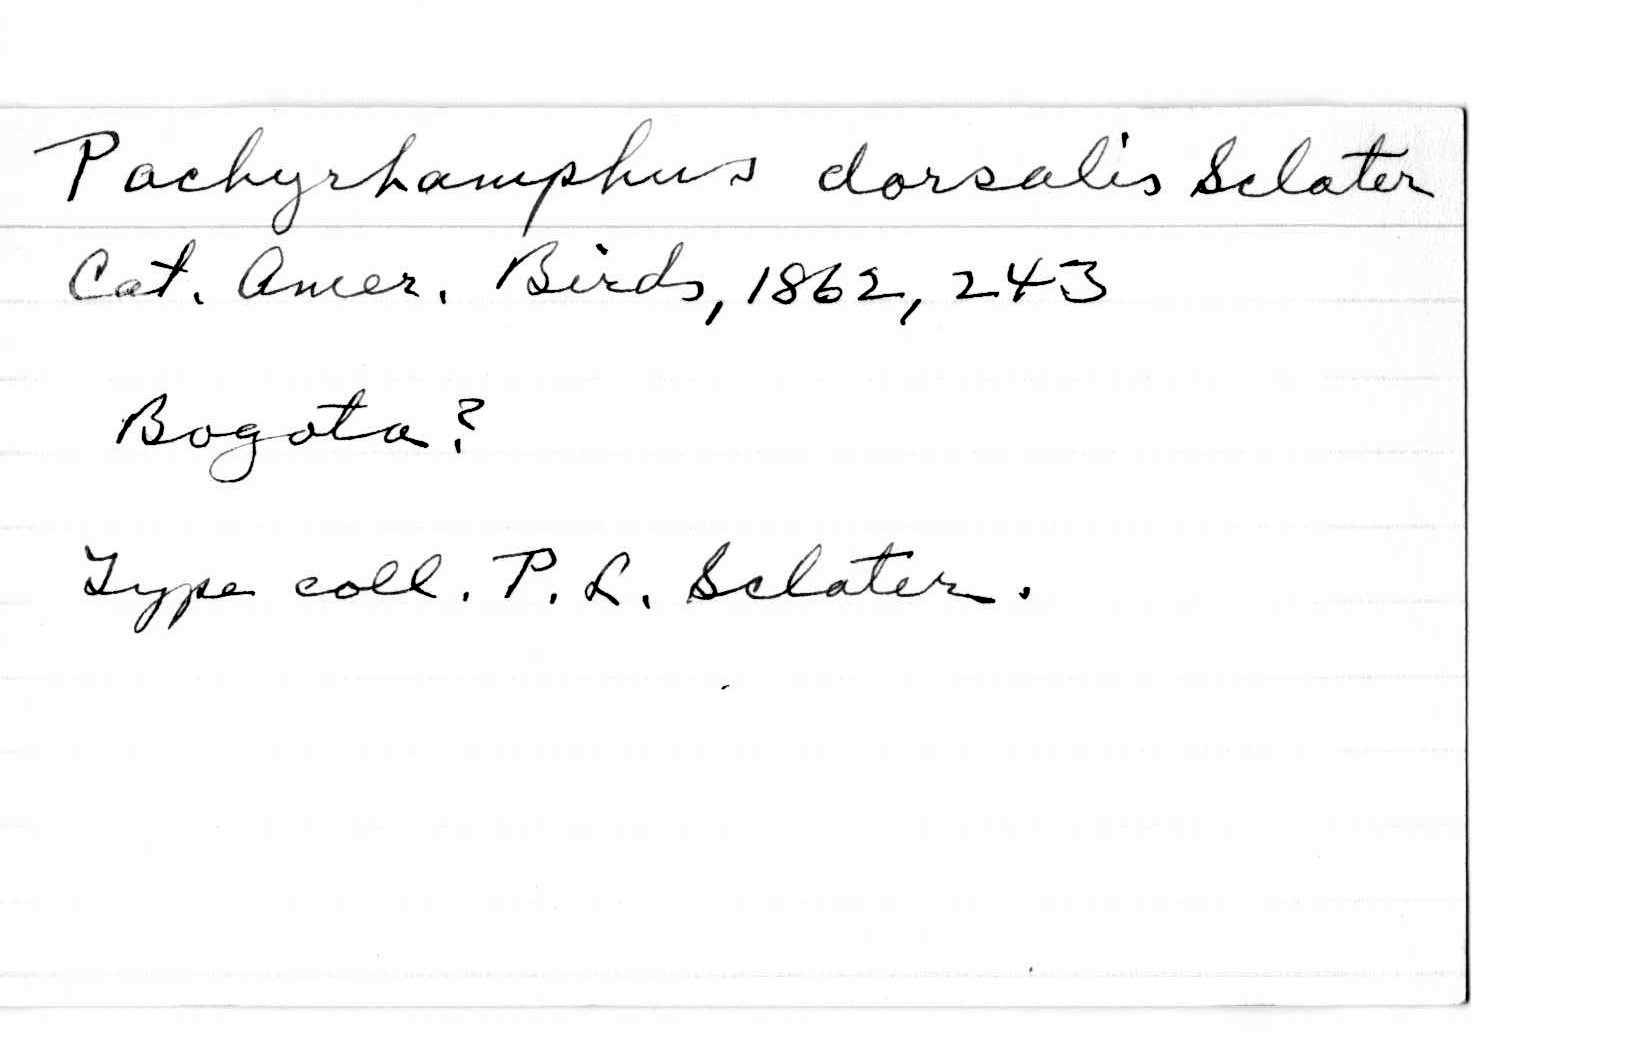 Pachyrhamphus dorsalis Sclater
Cat. Amer. Birds, 1862, 243
Bogota?
Type coll. P. L. Sclater.